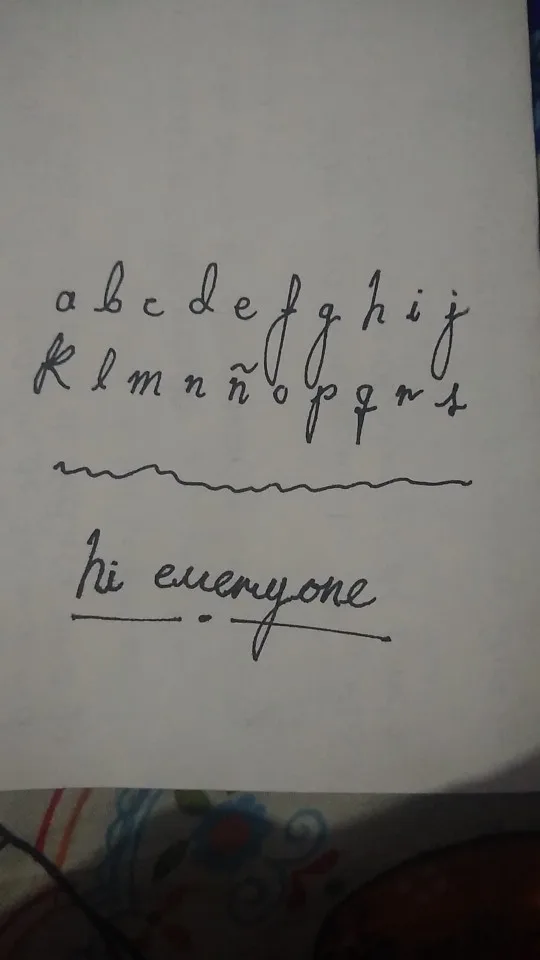 a b c d e f g h i j
k l m n ñ o p q r s
hi everyone